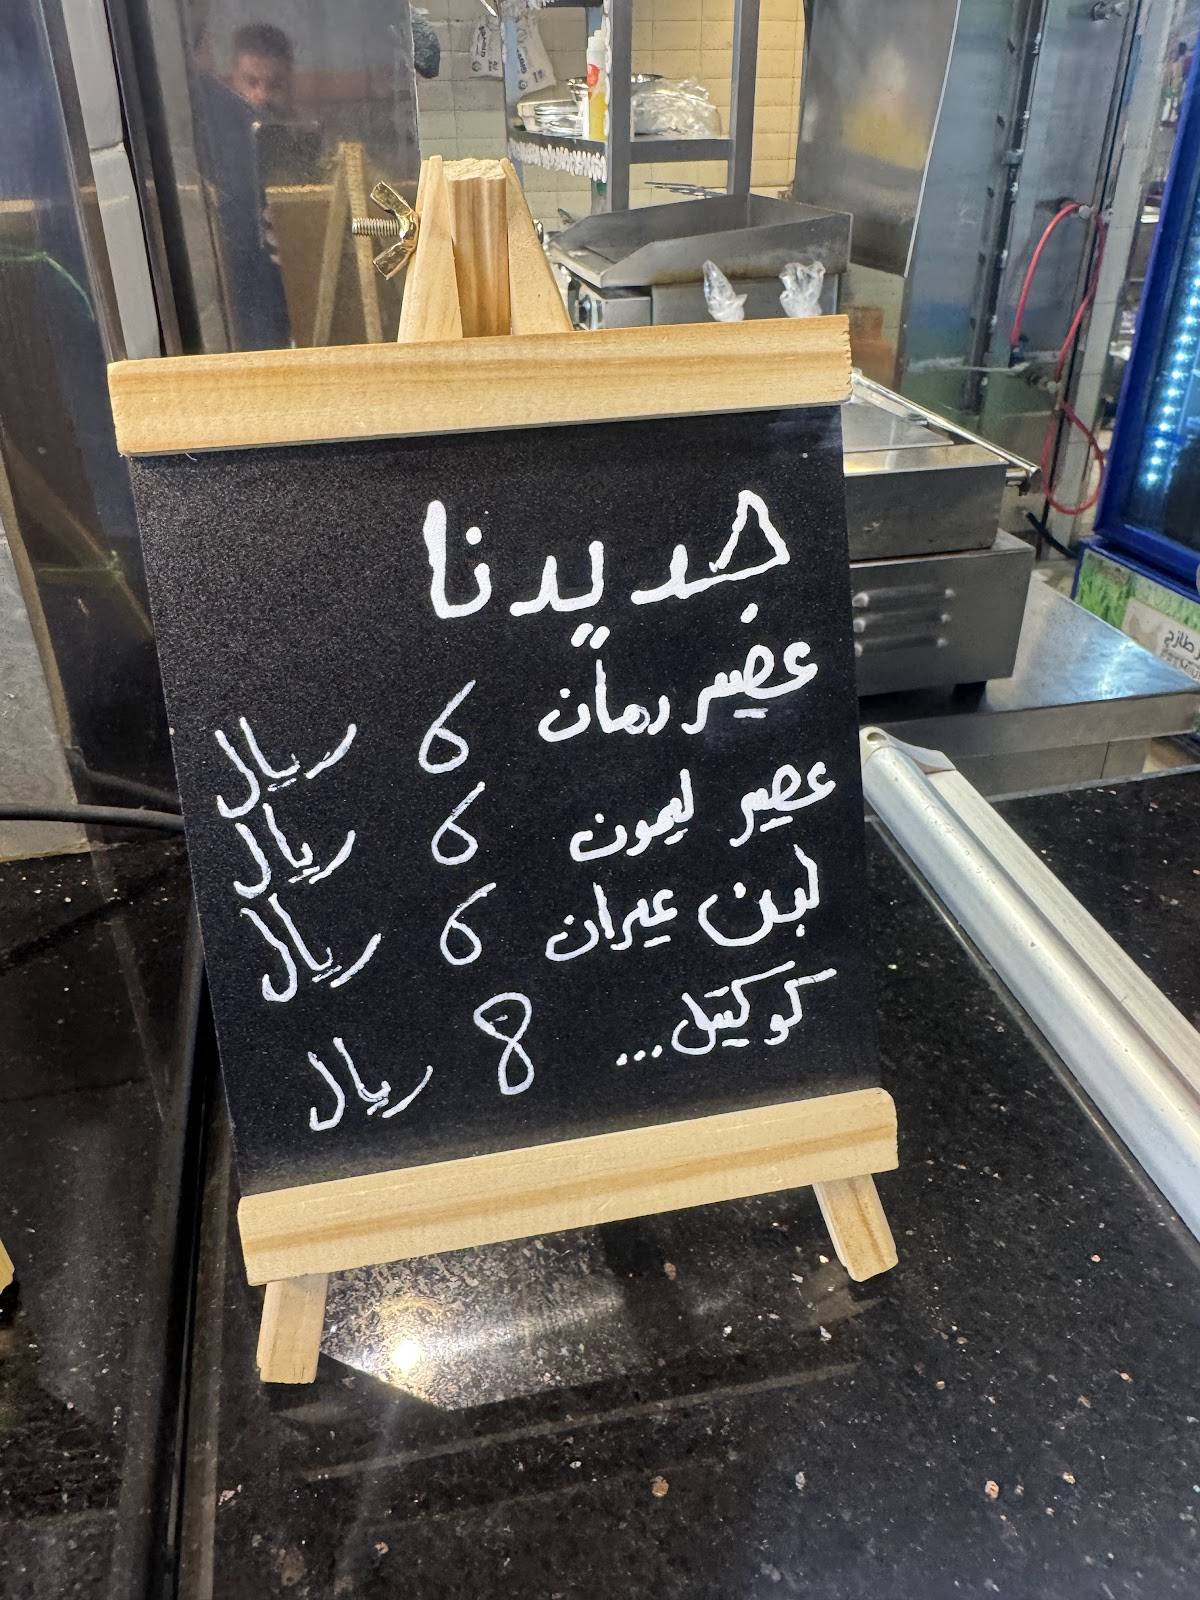 جديدنا
عصير رمان 6 ريال
عصير ليمون 6 ريال
لبن عيران 6 ريال
كوكتيل... 8 ريال
طازج